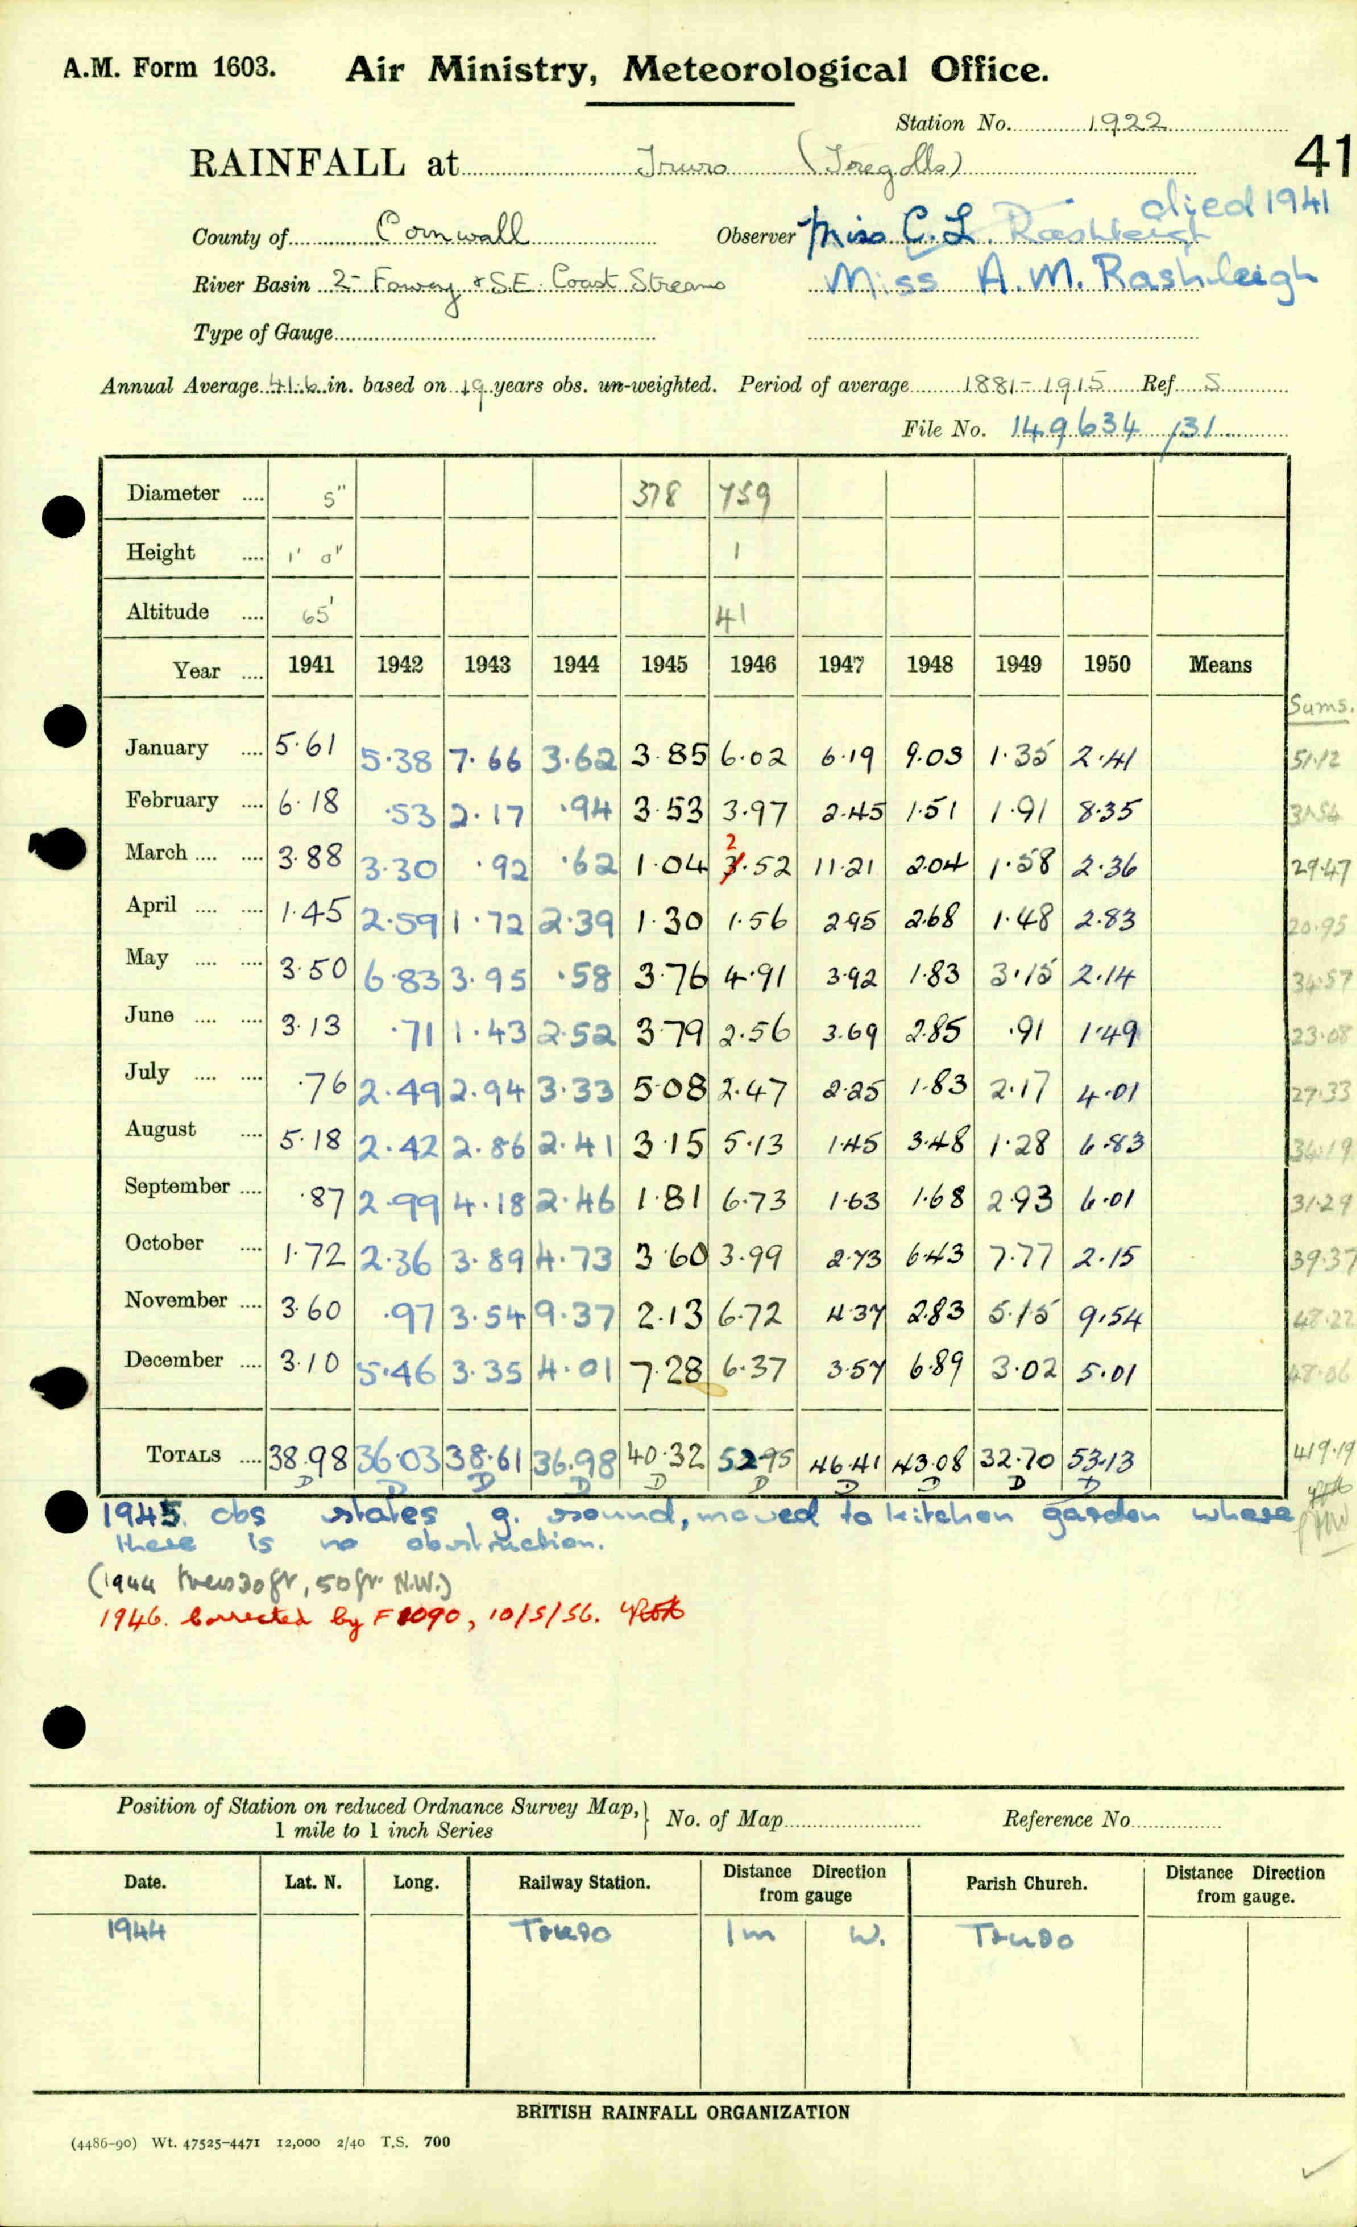 A.M. Form 1603. Air Ministry, Meteorological Office.
Station No. 1922
41
RAINFALL at Truro (Tregolls)
died 1941
County of Cornwall Observer Miss C. L. Rashleigh
River Basin 2- Fowey & S.E. Coast Streams Miss A. M. Rashleigh
Type of Gauge
Annual Average 41.6 in. based on 19 years obs. un-weighted. Period of average 1881-1915 Ref S
File No. 149634/31
Diameter .... 5" 378 759
Height .... 1' 0" 1
Altitude .... 65' 41
Year .... 1941 1942 1943 1944 1945 1946 1947 1948 1949 1950 Means
Sums.
January .... 5.61 5.38 7.66 3.62 3.85 6.02 6.19 9.03 1.35 2.41 51.12
February .... 6.18 .53 2.17 .94 3.53 3.97 2.45 1.51 1.91 8.35 31.54
March .... .... 3.88 3.30 .92 .62 1.04 2.52 11.21 2.04 1.58 2.36 29.47
April .... .... 1.45 2.59 1.72 2.39 1.30 1.56 2.95 2.68 1.48 2.83 20.95
May .... .... 3.50 6.83 3.95 .58 3.76 4.91 3.92 1.83 3.15 2.14 34.57
June .... .... 3.13 .71 1.43 2.52 3.79 2.56 3.69 2.85 .91 1.49 23.08
July .... .... .76 2.49 2.94 3.33 5.08 2.47 2.25 1.83 2.17 4.01 27.33
August .... 5.18 2.42 2.86 2.41 3.15 5.13 1.45 3.48 1.28 6.83 34.19
September .... .87 2.99 4.18 2.46 1.81 6.73 1.63 1.68 2.93 6.01 31.29
October .... 1.72 2.36 3.89 4.73 3.60 3.99 2.73 6.43 7.77 2.15 39.37
November .... 3.60 .97 3.54 9.37 2.13 6.72 4.37 2.83 5.15 9.54 48.22
December .... 3.10 5.46 3.35 4.01 7.28 6.37 3.57 6.89 3.02 5.01 48.06
TOTALS .... 38.98 36.03 38.61 36.98 40.32 52.95 46.41 43.08 32.70 53.13 419.19
D D D D D D D D D D
1945 obs states g. round, moved to kitchen garden where
there is no obstruction.
(1944 trees 30ft, 50ft. N.W.)
1946. Corrected by F 1090, 10/5/56.
Position of Station on reduced Ordnance Survey Map, 1 mile to 1 inch Series } No. of Map Reference No
Date. Lat. N. Long. Railway Station. Distance Direction from gauge Parish Church. Distance Direction from gauge.
1944 Truro 1m W. Truro
BRITISH RAINFALL ORGANIZATION
(4486-90) Wt. 47525-4471 12,000 2/40 T.S. 700